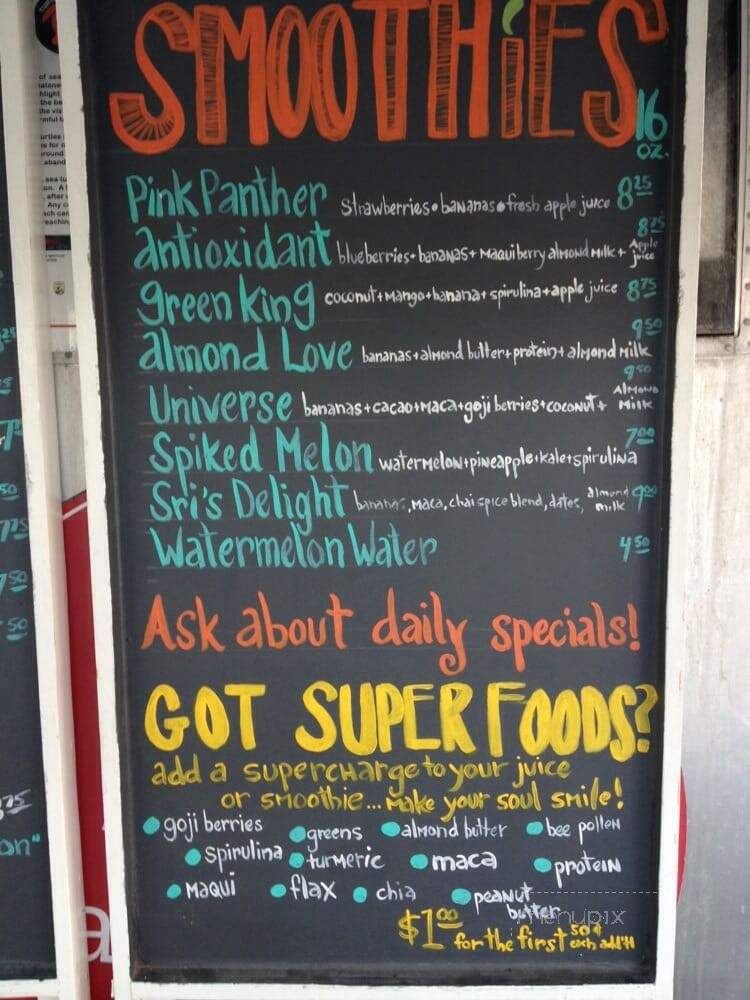 SMOOTHiES
16
oz.
Pink Panther strawberries • bananas • fresh apple juice 8 25
antioxidant blueberries + bananas + Maqui berry almond milk + Apple juice
green King coconut + Mango + banana + spirulina + apple juice 8 75
almond Love bananas + almond butter + protein + almond Milk 9 50
Universe bananas + cacao + maca + goji berries + coconut + Almond Milk 9 50
Spiked Melon watermelon + pineapple + kale + spirulina 7 00
Sri's Delight bananas, Maca, chai spice blend, dates, almond milk 9 00
Watermelon Water 4 50
Ask about daily specials!
GOT SUPER FOODS?
add a supercharge to your juice
or smoothie... Make your soul smile!
• goji berries • greens • almond butter • bee pollen
• spirulina • turmeric • maca • protein
• Maqui • flax • chia • peanut butter
menupix
$1 00 for the first 50¢ each add'tl